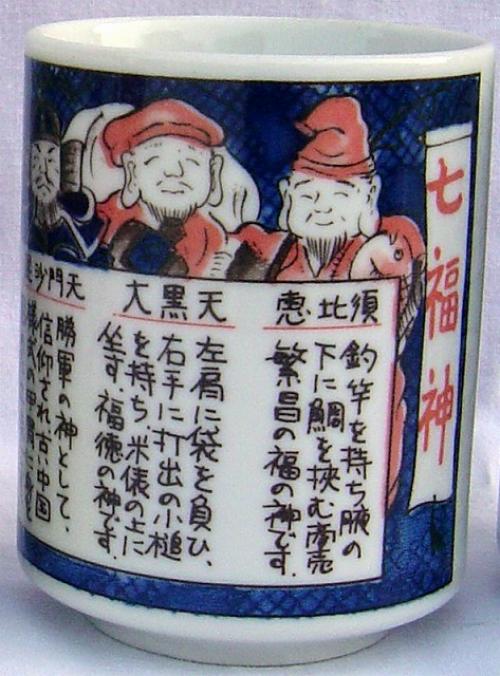 七福神
恵比須
釣竿を持ち腋の
下に鯛を挟む商売
繁昌の福の神です.
大黒天
左肩に袋を負ひ、
右手に打出の小槌
を持ち、米俵の上に
坐す.福徳の神です.
沙門天
勝軍の神として、
信仰され古い中国